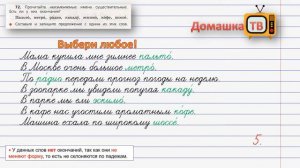 72. Прочитайте напечатанные имена существительные.
Есть ли у них окончания?
Пальто, метро, радио, какаду, эскимо, кофе, шоссе.
• Составьте и запишите предложение с одним из этих слов.
Домашка
ТВ
Выбери любое!
Мама купила мне зимнее пальто.
В Москве очень большое метро.
По радио передали прогноз погоды на неделю.
В зоопарке мы увидели попугая какаду.
В парке мы ели эскимо.
В кафе нас угостили ароматным кофе.
Машина ехала по широкому шоссе.
5.
• У данных слов нет окончаний, так как они не
меняют форму, то есть не склоняются по падежам.